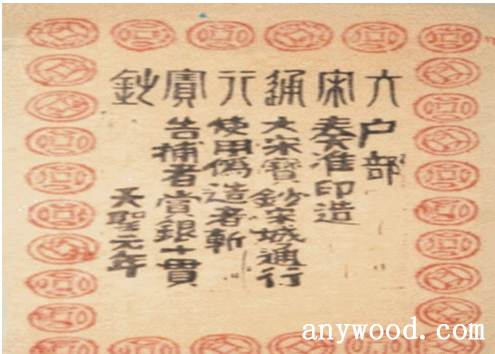 大宋通行寶鈔
户部
奏准印造
大宋寶鈔宋城通行
使用僞造者斬
告捕者賞銀十貫
天聖元年
anywood.com